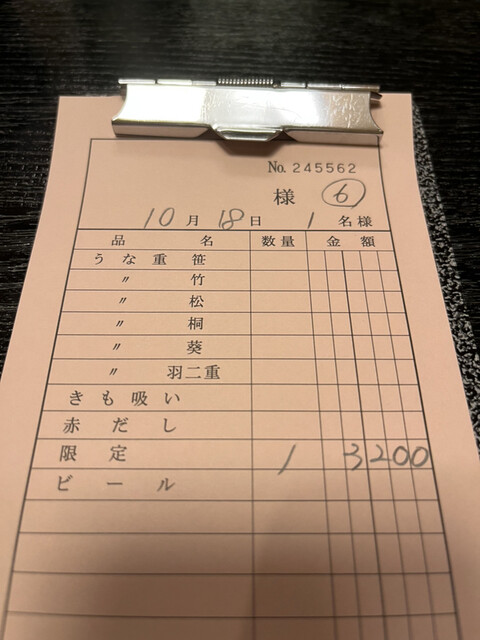 No. 245562
様 6
10月18日 1名様
品名 数量 金額
うな重 笹
〃 竹
〃 松
〃 桐
〃 葵
〃 羽二重
きも吸い
赤だし
限定 1 3200
ビール